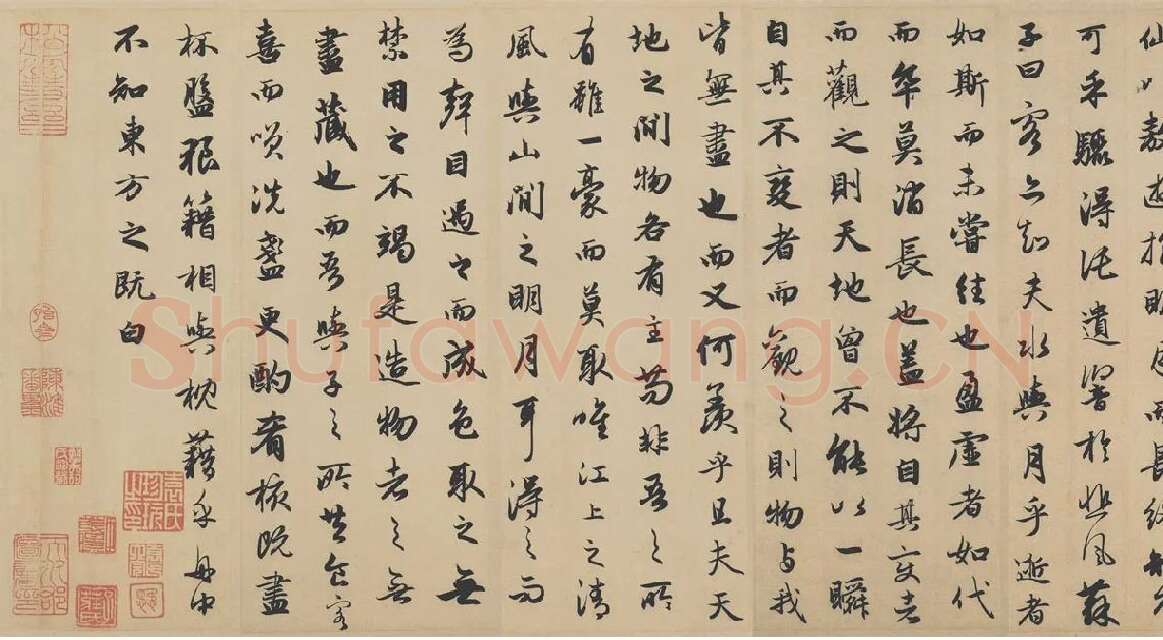 仙以敖遊抱明月而長終
可乎驟得託遺響於悲風蘇
子曰客亦知夫水與月乎逝者
如斯而未嘗往也盈虛者如代
而卒莫消長也蓋將自其變者
而觀之則天地曾不能以一瞬
自其不變者而觀之則物与我
皆無盡也而又何羨乎且夫天
地之間物各有主苟非吾之所
有雖一豪而莫取唯江上之清
風與山間之明月耳得之而
為聲目遇之而成色取之無
禁用之不竭是造物者之無
盡藏也而吾與子之所共食客
喜而笑洗盞更酌肴核既盡
杯盤狼籍相與枕藉乎舟中
不知東方之既白
Shufawang.CN